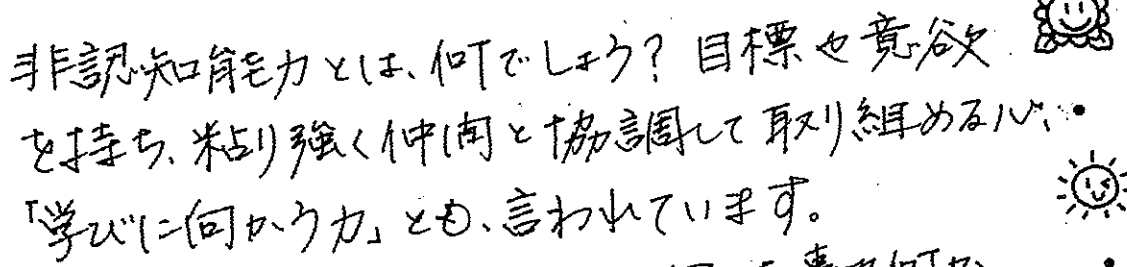 非認知能力とは、何でしょう？目標や意欲
を持ち、粘り強く仲間と協調して取り組める心、
「学びに向かう力」とも、言われています。